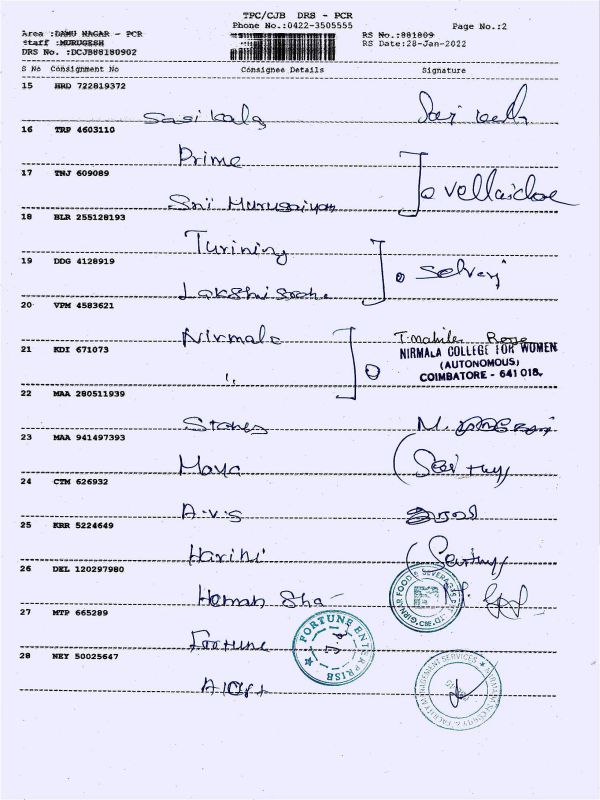 TPC/CJB DRS - PCR
Phone No.:0422-3505555
Page No.:2
Area :DAMU NAGAR - PCR
Staff :MURUGESH
DRS No. :DCJB88180902
RS No.:881809
RS Date:28-Jan-2022
S No Consignment No Consignee Details Signature
15 HRD 722819372
Sasikala
16 TRP 4603110
Prime
17 TNJ 609089
Sri Murugaiyan
18 BLR 255128193
Turining
19 DDG 4128919
Selvaj
20 VPM 4583621
Nirmala
21 KDI 671073
NIRMALA COLLEGE FOR WOMEN
(AUTONOMOUS)
COIMBATORE - 641 018.
22 MAA 280511939
Stanes M.
23 MAA 941497393
Maya
24 CTM 626932
A.V.S
25 KRR 5224649
Harini
26 DEL 120297980
Heman Sha
27 MTP 665289
Fortune
FORTUNE ENTERPRISE
28 NEY 50025647
Alert
MANAGEMENT SERVICES